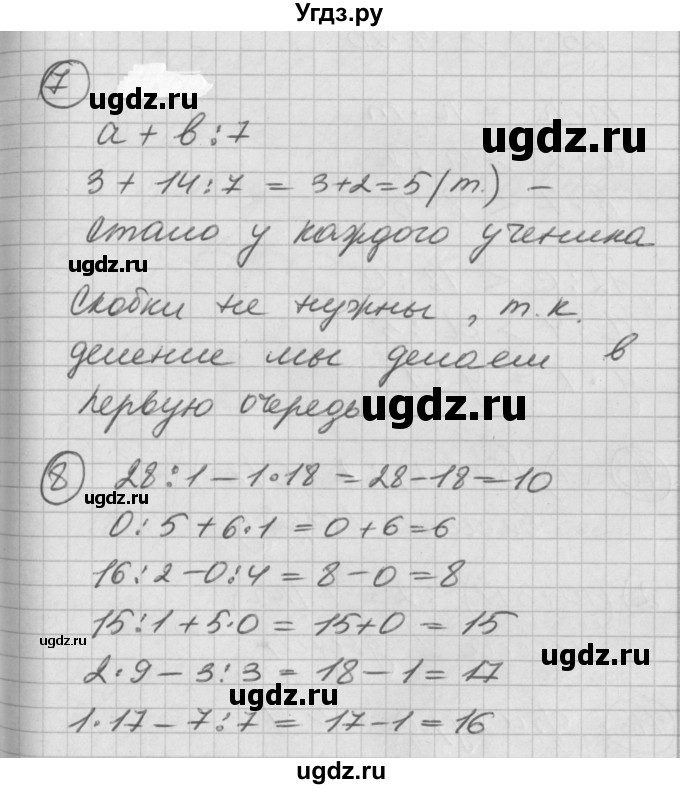 Угдз.ру
7
ugdz.ru
а + в : 7
ugdz.ru
3 + 14 : 7 = 3+2=5(т.) –
стало у каждого ученика
ugdz.ru
Скобки не нужны, т.к.
деление мы делаем в
первую очередь
ugdz.ru
8 28:1 – 1·18 = 28–18=10
ugdz.ru
0:5 + 6·1 = 0+6=6
ugdz.ru
16:2 – 0:4 = 8 – 0 = 8
15:1 + 5·0 = 15+0 = 15
ugdz.ru
ugdz.ru
2·9 – 3:3 = 18 – 1 = 17
ugdz.ru
1·17 – 7:7 = 17 – 1 = 16
ugdz.ru